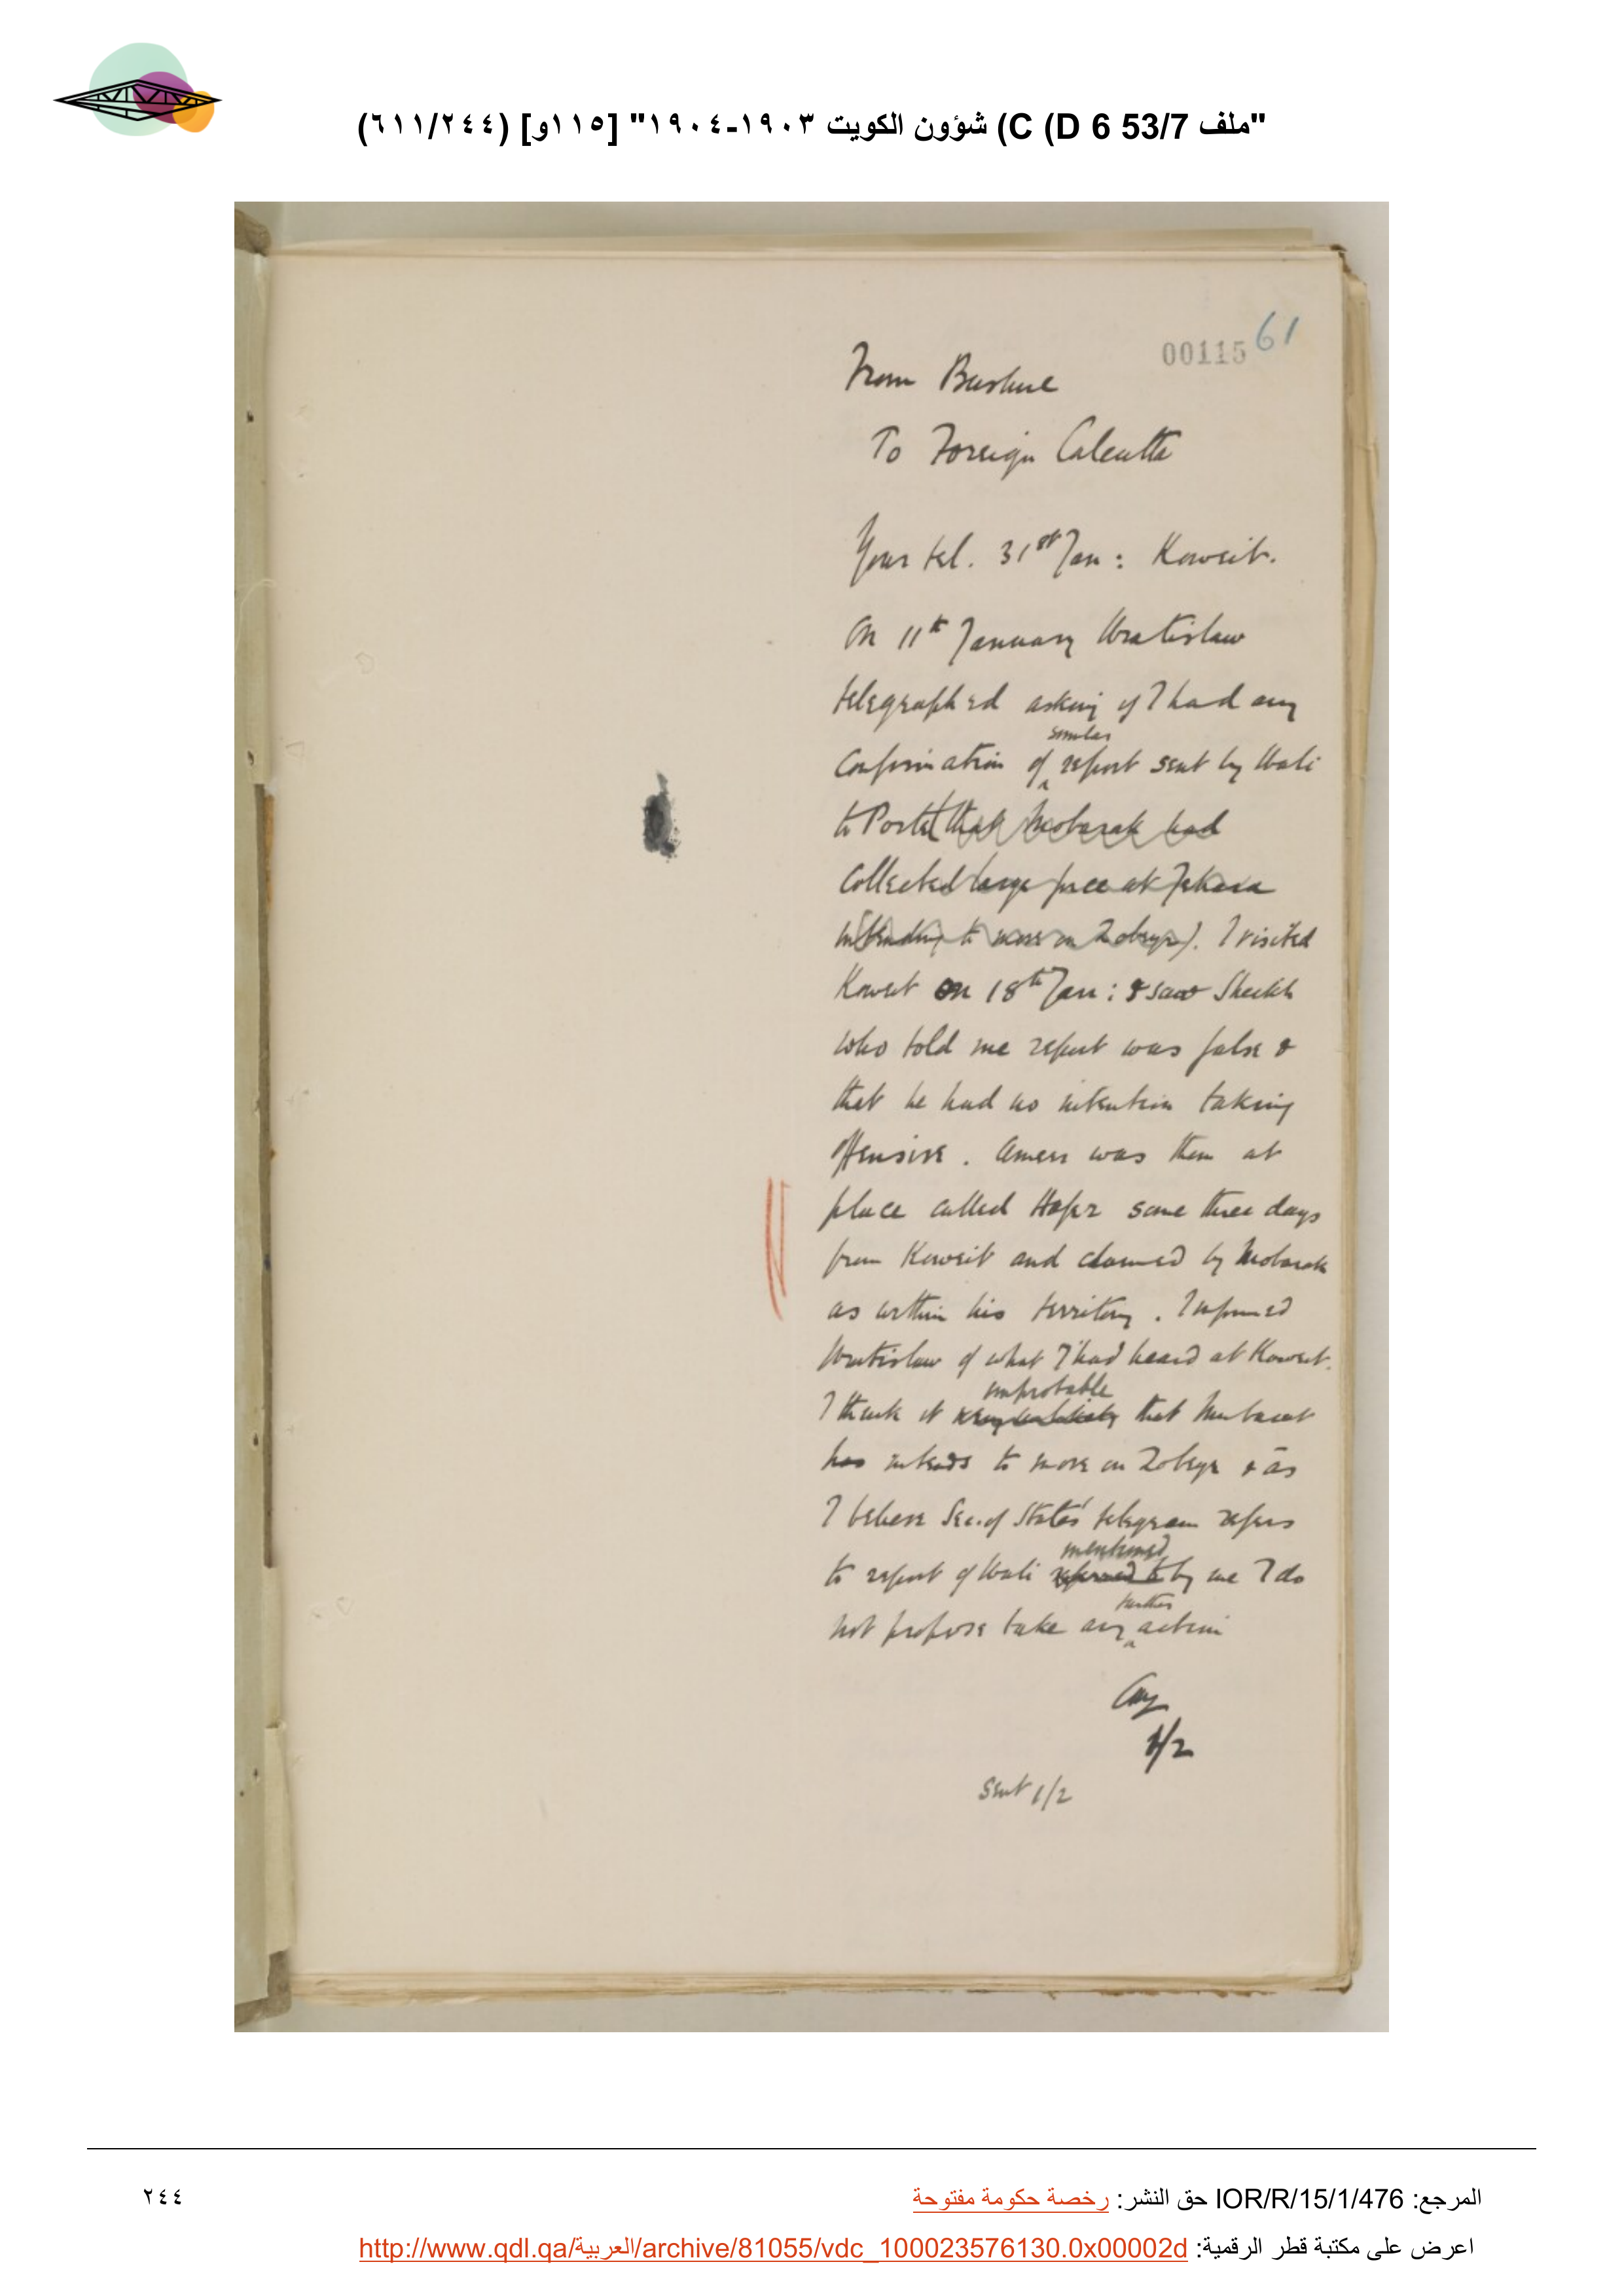 "ملف 53/7 C (D 6) شؤون الكويت ١٩٠٣-١٩٠٤" [١١٥و] (٦١١/٢٤٤)
00115 61
From Bushire
To Foreign Calcutta
Your tel. 31st Jan: Koweit.
On 11th January Wratislaw
telegraphed asking if I had any
similar
confirmation of report sent by Wali
to Porte (that Mobarak had
collected large force at Jahara
intending to move on Zobeyr). I visited
Koweit on 18th Jan: & saw Sheikh
who told me report was false &
that he had no intention taking
offensive. Ameer was then at
place called Hafr some three days
from Koweit and claimed by Mobarak
as within his territory. I informed
Wratislaw of what I had heard at Koweit.
improbable
I think it very unlikely that Mubarak
has intends to move on Zobeyr & as
I believe Sec. of State's telegram refers
mentioned
to report of Wali referred to by me I do
further
not propose take any action
1/2
sent 1/2
المرجع: IOR/R/15/1/476 حق النشر: رخصة حكومة مفتوحة
٢٤٤
اعرض على مكتبة قطر الرقمية: http://www.qdl.qa/العربية/archive/81055/vdc_100023576130.0x00002d